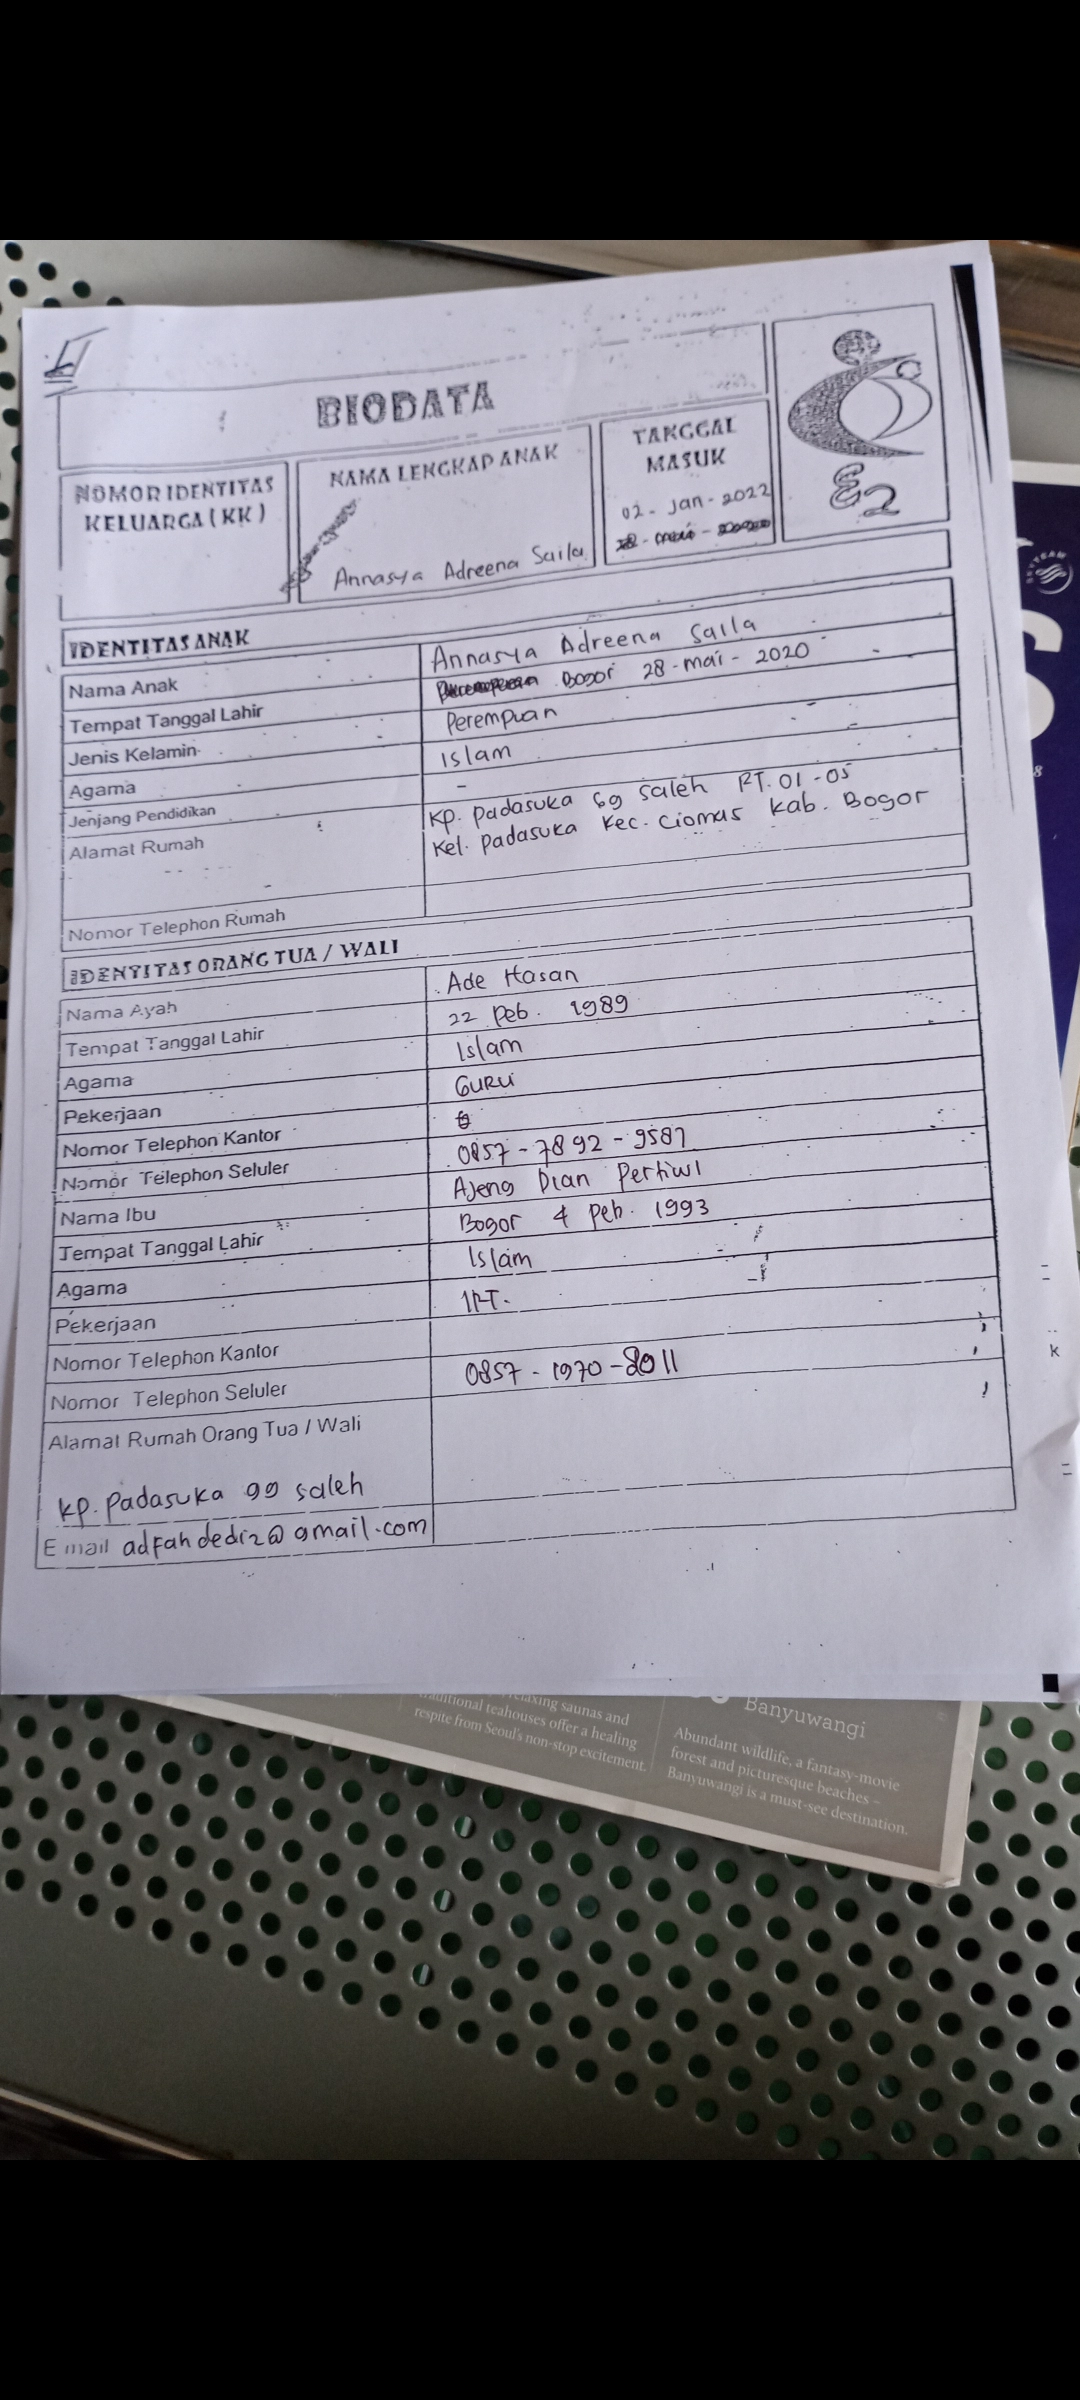 BIODATA
NOMOR IDENTITAS
KELUARGA ( KK )
NAMA LENGKAP ANAK
Annasya Adreena Saila
TANGGAL
MASUK
02 - Jan - 2022
E2
IDENTITAS ANAK
Nama Anak Annasya Adreena Saila
Tempat Tanggal Lahir Bogor 28 - mai - 2020
Jenis Kelamin Perempuan
Agama Islam
Jenjang Pendidikan -
Alamat Rumah Kp. Padasuka Gg Saleh RT. 01 - 05
Kel. Padasuka Kec. Ciomas Kab. Bogor
Nomor Telephon Rumah
IDENTITAS ORANG TUA / WALI
Nama Ayah Ade Hasan
Tempat Tanggal Lahir 22 Peb. 1989
Agama Islam
Pekerjaan GURU
Nomor Telephon Kantor
Nomor Telephon Seluler 0857 - 7892 - 9587
Nama Ibu Ajeng Dian Pertiwi
Tempat Tanggal Lahir Bogor 4 Peb. 1993
Agama Islam
Pekerjaan IRT.
Nomor Telephon Kantor
Nomor Telephon Seluler 0857 - 1970 - 2011
Alamat Rumah Orang Tua / Wali
Kp. Padasuka gg saleh
Email adfahdediz@gmail.com
relaxing saunas and
traditional teahouses offer a healing
respite from Seoul's non-stop excitement.
Banyuwangi
Abundant wildlife, a fantasy-movie
forest and picturesque beaches –
Banyuwangi is a must-see destination.
SKYTEAM
8
k